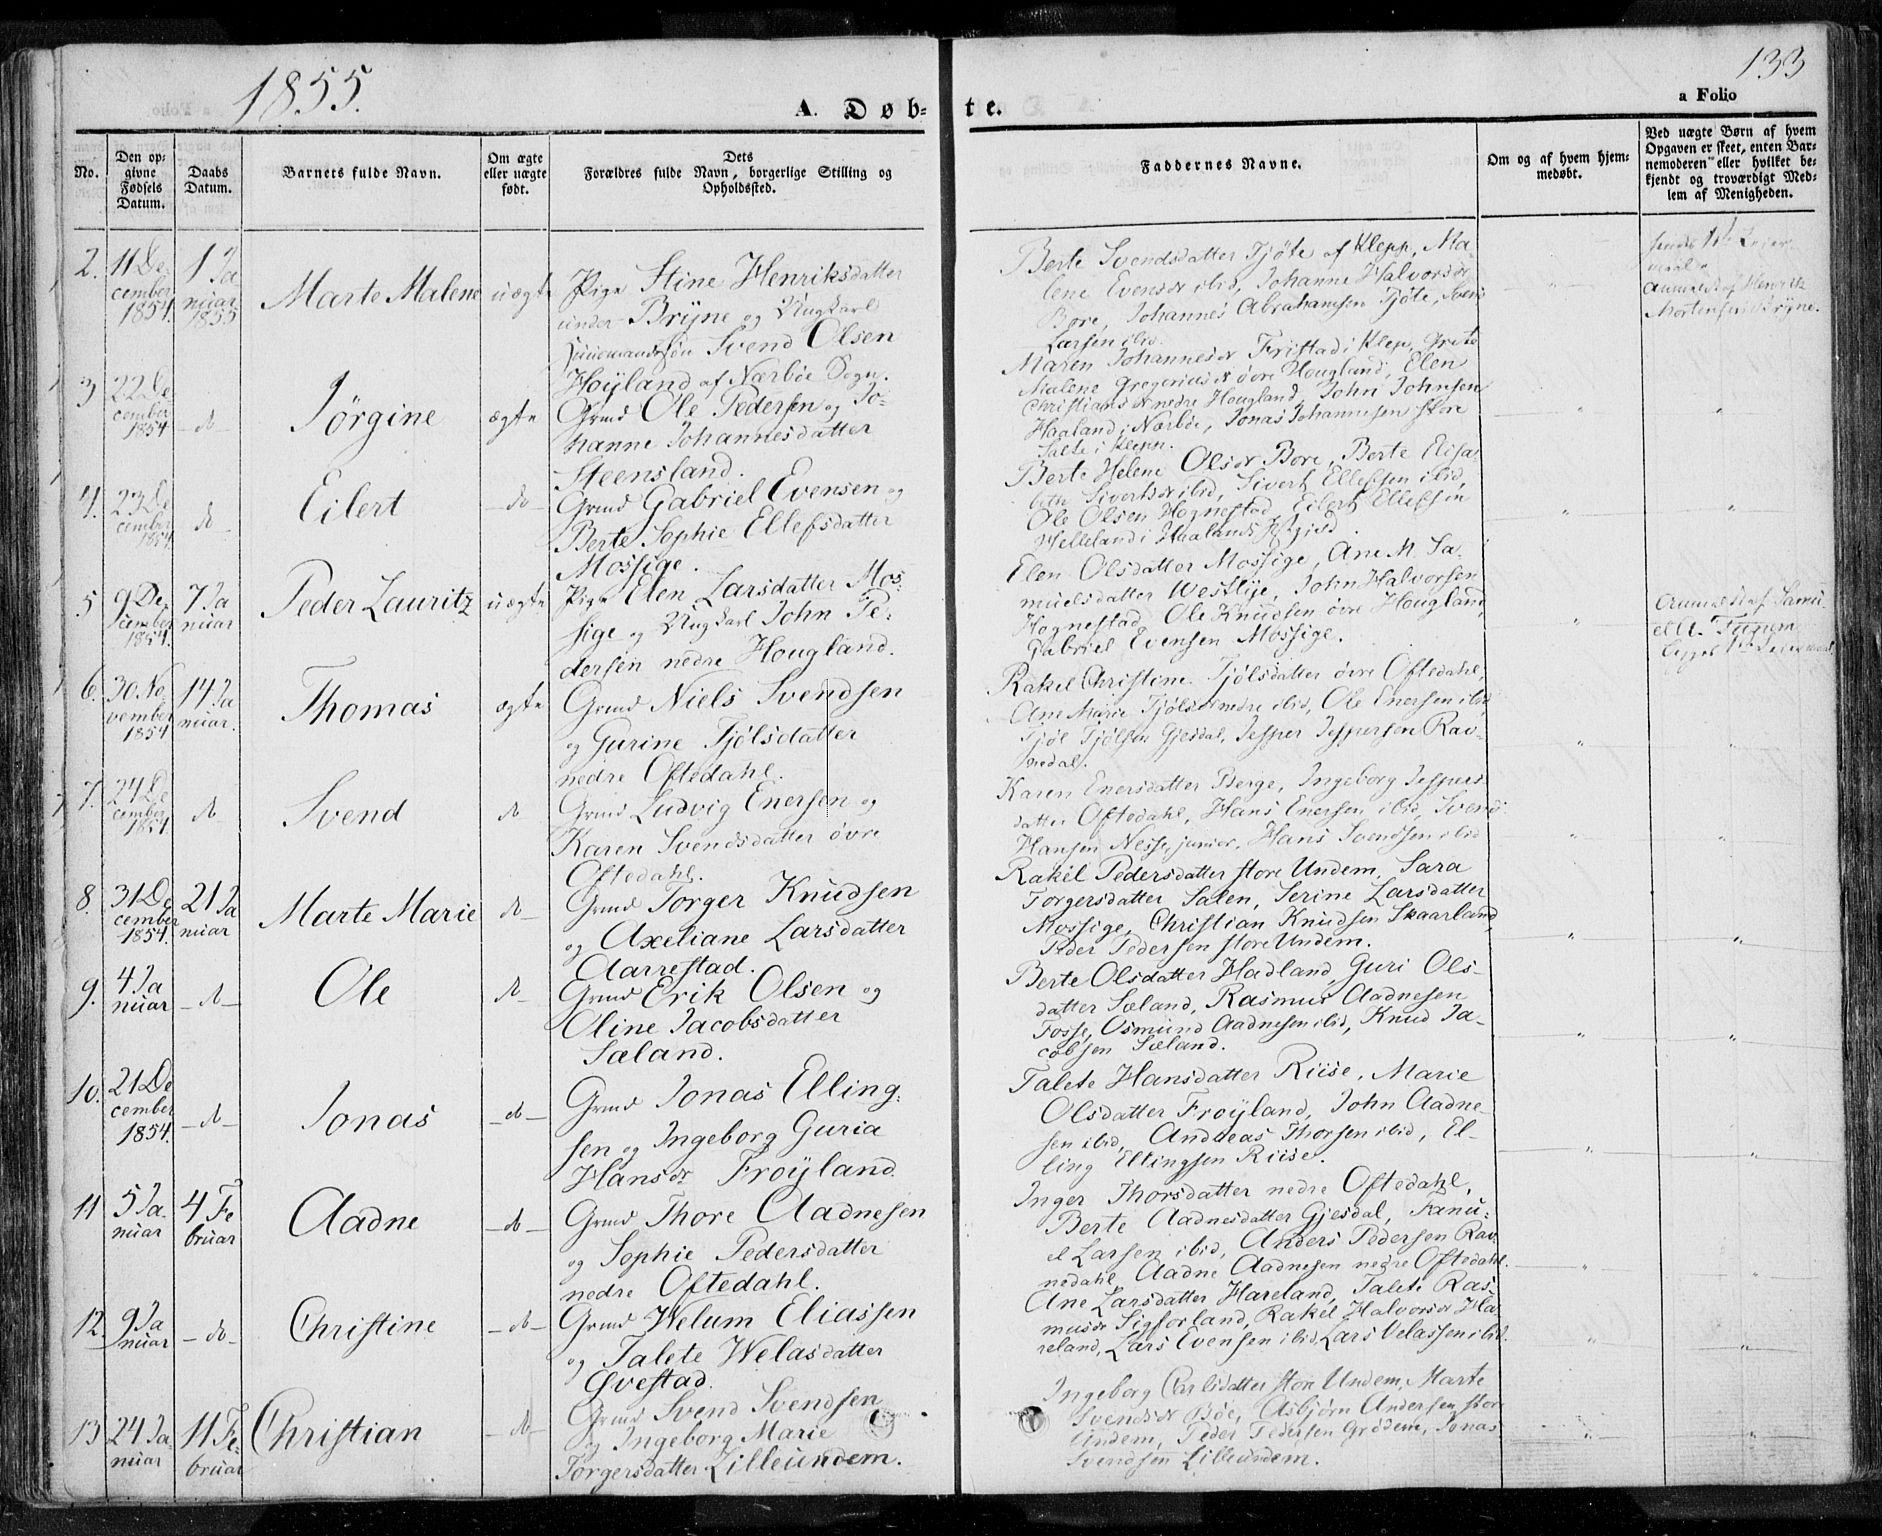 1855.
133
A. Døb-
te.
a Folio
No.
Den op-
givne
Fødsels
Datum.
Daabs
Datum.
Barnets fulde Navn.
Om ægte
eller uægte
født.
Dets
Forældres fulde Navn, borgerlige Stilling og
Opholdssted.
Faddernes Navne.
Om og af hvem hjem-
medøbt.
Ved uægte Børn af hvem
Opgaven er skeet, enten Bar-
nemoderen eller hvilket be-
kjendt og troværdigt Med-
lem af Menigheden.
2.
11 De
cember
1854.
1 Ja
nuar
1855
Marte Malene
uægte
Pige Stine Henriksdatter
under Bryne og Ungkarl
Svend Olsen
Høyland af Nærbøe Sogn.
Berte Svendsdatter Tjøte af Klepp, Ma
lene Evensdr ibid, Johanne Halvorsdr
Bore, Johannes Abrahamsen Tjøte, Svend
Larsen ibid.
Anmeldt af Henrik
Mortensen Bryne.
3
22 De
cember
1854
do
Jörgine
ægte
Grmd Ole Pedersen og Jo-
hanne Johannesdatter
Steensland.
Maren Johannesdr Fristad i Klep, Grete
Malene Gregoriusdr övre Hougland, Elen
Christiansdr nedre Hougland, John Johnsen
Haaland i Nærbøe, Jonas Johannesen store
Salte i Klepp.
"
"
4.
23 De
cember
1854.
do
Eilert
do
Grmd Gabriel Evensen og
Berte Sophie Ellefsdatter
Mossige.
Berte Helene Olsdr Bore, Berte Elisa
beth Sivertsdr ibid, Sivert Ellefsen ibid,
Ole Olsen Hognestad, Eilert Ellefsen
Welleland i Haalands Pstgjeld.
"
"
5
9 De
cember
1854.
7 Ja
nuar
Peder Lauritz
uægte
Pige Elen Larsdatter Mos-
sige og Ungkarl John Pe-
dersen nedre Hougland.
Elen Olsdatter Mossige, Ane M. Sa-
muelsdatter Westlye, John Halvorsen
Hognestad, Ole Knudsen övre Hougland,
Gabriel Evensen Mossige.
"
Anmeldt af Samu
el A.
6.
30 No
vember
1854
14 Ja
nuar.
Thomas
ægte
Grmd Niels Svendsen
og Gurine Tjölsdatter
nedre Oftedahl.
Rakel Christine Tjölsdatter övre Oftedahl,
Ane Marie Tjölsdr nedre ibid, Ole Enersen ibid
Tjöl Tjölsen Gjesdal, Jesper Jespersen Rav-
nedal.
"
"
7.
24 De
cember
1854.
do
Svend
do
Grmd Ludvig Enersen og
Karen Svendsdatter övre
Oftedahl.
Karen Enersdatter Berge, Ingeborg Jespers
datter Oftedahl, Hans Enersen ibid, Svend
Hansen Nesse, junior, Hans Svendsen ibid
"
"
8.
31 De
cember
1854.
21 Ja
nuar
Marte Marie
do
Grmd Torger Knudsen
og Axeliane Larsdatter
Aarrestad.
Rakel Pedersdatter store Undem, Sara
Torgersdatter Salen, Serine Larsdatter
Mossige, Christian Knudsen Skaarland,
Peder Pedersen store Undem.
"
"
9.
4 Ja
nuar
do
Ole
do
Grmd Erik Olsen og
Oline Jacobsdatter
Sæland.
Berte Olsdatter Hadland, Guri Ols-
datter Sæland, Rasmus Aadnesen
Fosse, Osmund Aadnesen ibid, Knud Ja-
cobsen Sæland.
"
"
10.
21 De
cember
1854.
do
Jonas
do
Grmd Jonas Elling-
sen og Ingeborg Guria
Hansdr Frøyland.
Talete Hansdatter Riise, Marie
Olsdatter Frøyland, John Aadne-
sen ibid, Andreas Thorsen ibid, El-
ling Ellingsen Riise.
"
"
11
5 Ja
nuar
4 Fe
bruar
Aadne
do
Grmd Thore Aadnesen
og Sophie Pedersdatter
nedre Oftedahl.
Inger Thorsdatter nedre Oftedahl,
Berte Aadnesdatter Gjesdal, Tanu-
el Larsen ibid, Anders Pedersen Rav
nedahl, Aadne Aadnesen nedre Oftedahl.
"
"
12.
9 Ja
nuar
do
Christine
do
Grmd Welum Eliassen
og Talete Welasdatter
Qvestad.
Ane Larsdatter Hareland, Talete Ras-
musdr Sigforland, Rakel Halvorsdr Ha
reland, Lars Evensen ibid, Lars Velassen ibid.
"
"
13
24 Ja-
nuar
11 Fe-
bruar
Christian
do
Grmd Svend Svendsen
og Ingeborg Marie
Torgersdatter Lilleundem.
Ingeborg Carlsdatter store Undem, Marte
Svendsdr Böe, Asbjørn Andersen stor
Undem, Peder Pedersen Grödem, Jonas
Svendsen Lilleundem.
"
"